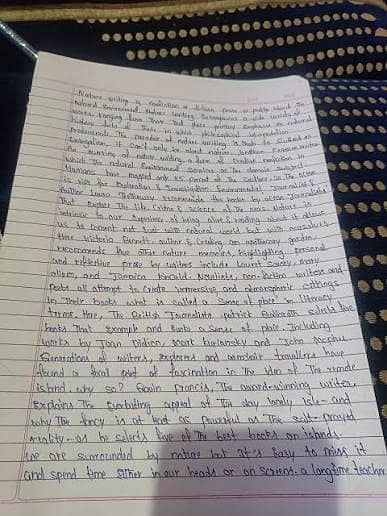 Nature writing is nonfiction or fiction prose or poetry about the
natural environment. nature writing Encompasses a wide variety of
works, ranging from those that place primary emphasis on natural
history facts to those in which philosophical interpretation
predominate. The
investigation, it can't only be about nature
an morning of nature writing, a form of creative nonfiction in
which the natural Environment serving as the
Humans have mapped only 25 percent of the Seafloor, so The ocean
is ripe for Exploration & Investigation Environmental Journalist &
Author Laura Trethewey recommends five books by ocean Journalists
That Explore The
intrinsic to our Experience of being alive & reading about it allows
us to connect not just with natural world but with ourselves
Here Victoria Bennett, author & Creating an apothecary garden,
recommends five other nature memoirs, highlighting personal
and reflective Prose by writers include
oliver, and Jamaica Kincaid. Novelists, non-fiction writers and
poets all attempt to Create immersive, and atmospheric settings
in Their books what is called a 'Sense of place' in literary
terms. Here, The British Journalist patrick selects five
books That Example and a Sense of place. Including
works by Joan Didion, mark kurlansky and John mcphee
Generations of writers, Explorers and armchair travellers have
found a focal point of fascination in The idea of The remote
island. why so? Gavin francis, The award-winning writer,
Explains The Everlasting appeal of The lonely isle - and
why The fancy is at least as powerful as The
reality - as he selects five of The best books on islands.
we are surrounded by nature but It's Easy to miss it
and spend time Either in our heads or on screens. a longtime teacher